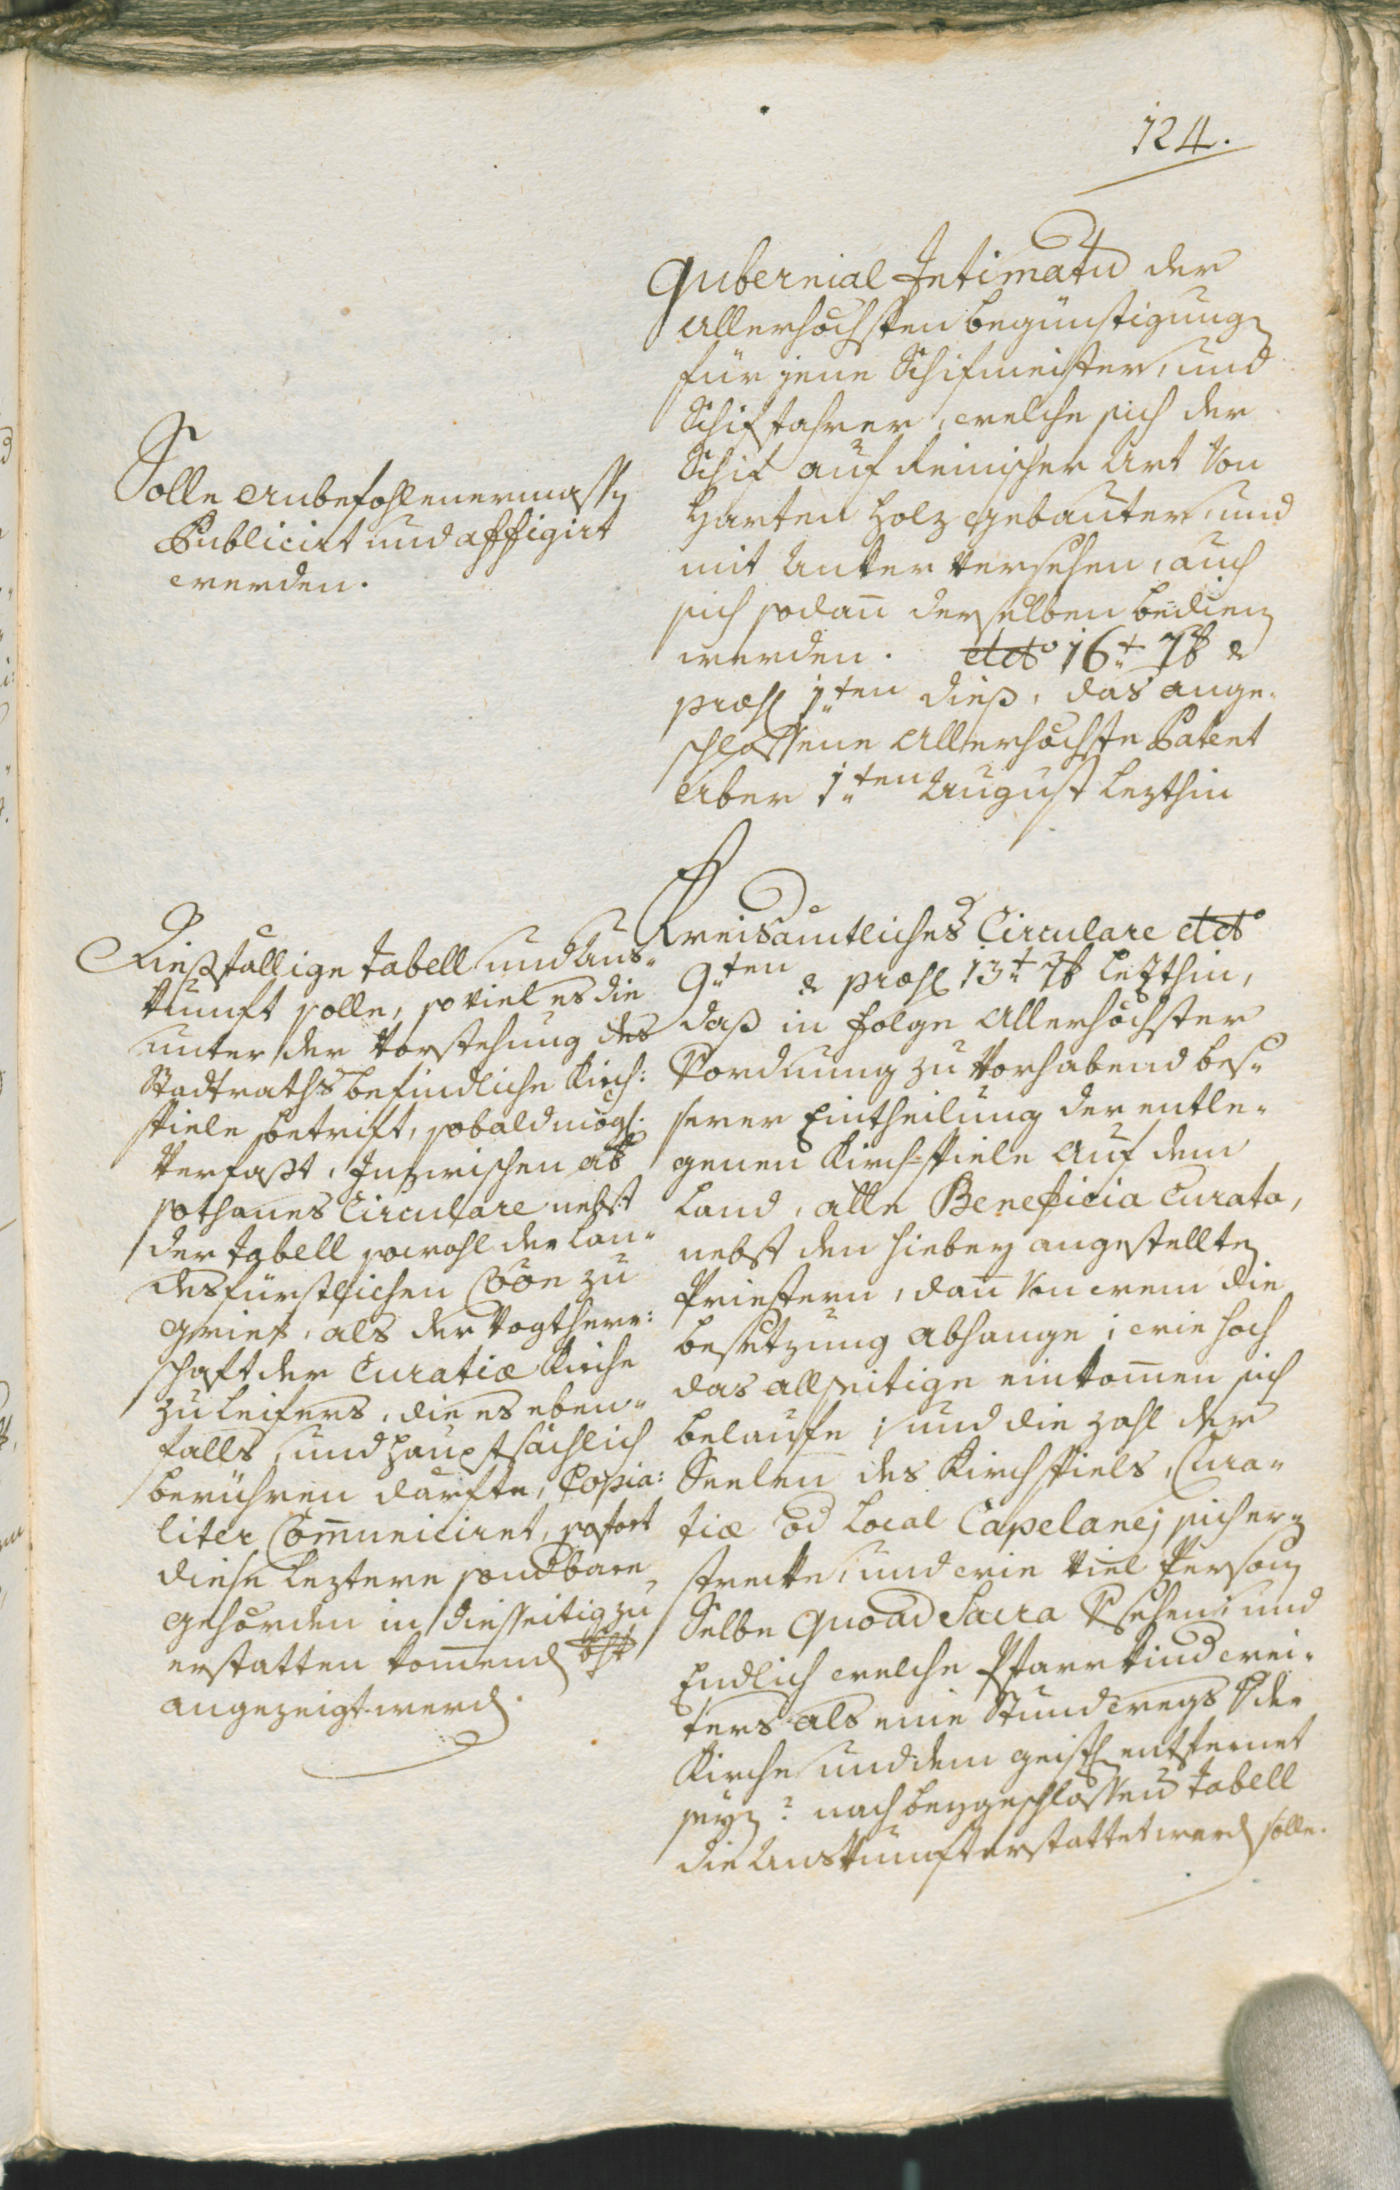 124.
Gubernial Intimatũ der
Allerhöchsten begünstigung
für jene Schifmeister, und
Schiffahrer, welche sich der
Schif auf Reinischer Art von
Harten Holz gebauter, und
mit Anker versehen, auch
sich sodañ derselben bedienen
werden. dtdto 16t 7b &
præs 1ten dieß, das ange-
schlossene Allerhöchste Patent
aber 1ten August lezthin
Solle anbefohlenermassen
Publicirt und affigirt
werden.
Kreisämtliches Circulare dtdto
9ten & præs 13t 7b lezthin,
daß in folge Allerhöchster
Vordnung zu vorhabend bes-
serer Eintheilung der entle-
genen Kirch-spiele auf dem
Land, alle Beneficia Curata,
nebst den hiebey angestellten
Priestern, dañ von wem die
besetzung abhange; wie hoch
das allseitige einkom̄en sich
belaufe; und die zahl der
Seelen des Kirchspiels, Cura-
tiæ od Local Capelaney sich er-
strecke, und wie viel Person
Selbe quoad Sacra Vsehen; und
Endlich welche Pfarrkind wei-
ters als eine Stund wegs V der
Kirche und dem geistl entfernet
seyn? nach beygeschlossen Tabell
die Auskunft erstattet werd solle.
Dießfällige Tabell und Aus-
kunft solle, so viel es die
unter der Vorstehung des
Stadtraths befindliche Kirch:
spiele betrift, sobald mögl:
verfaßt, Inzwischen ab
sothanes Circulare nebst
der Tabell sowohl der lan-
desfürstlichen Cõon zu
Gries, als der Vogtherr:
schaft der Curatiæ Kirche
zu Leifers, die es eben-
falls, und Hauptsächlich
berühren darfte, Copia:
liter Com̄uniciret, sofort
diese leztere
gehörden in diesseitig zu
erstatten kom̄end
angezeigt werd.